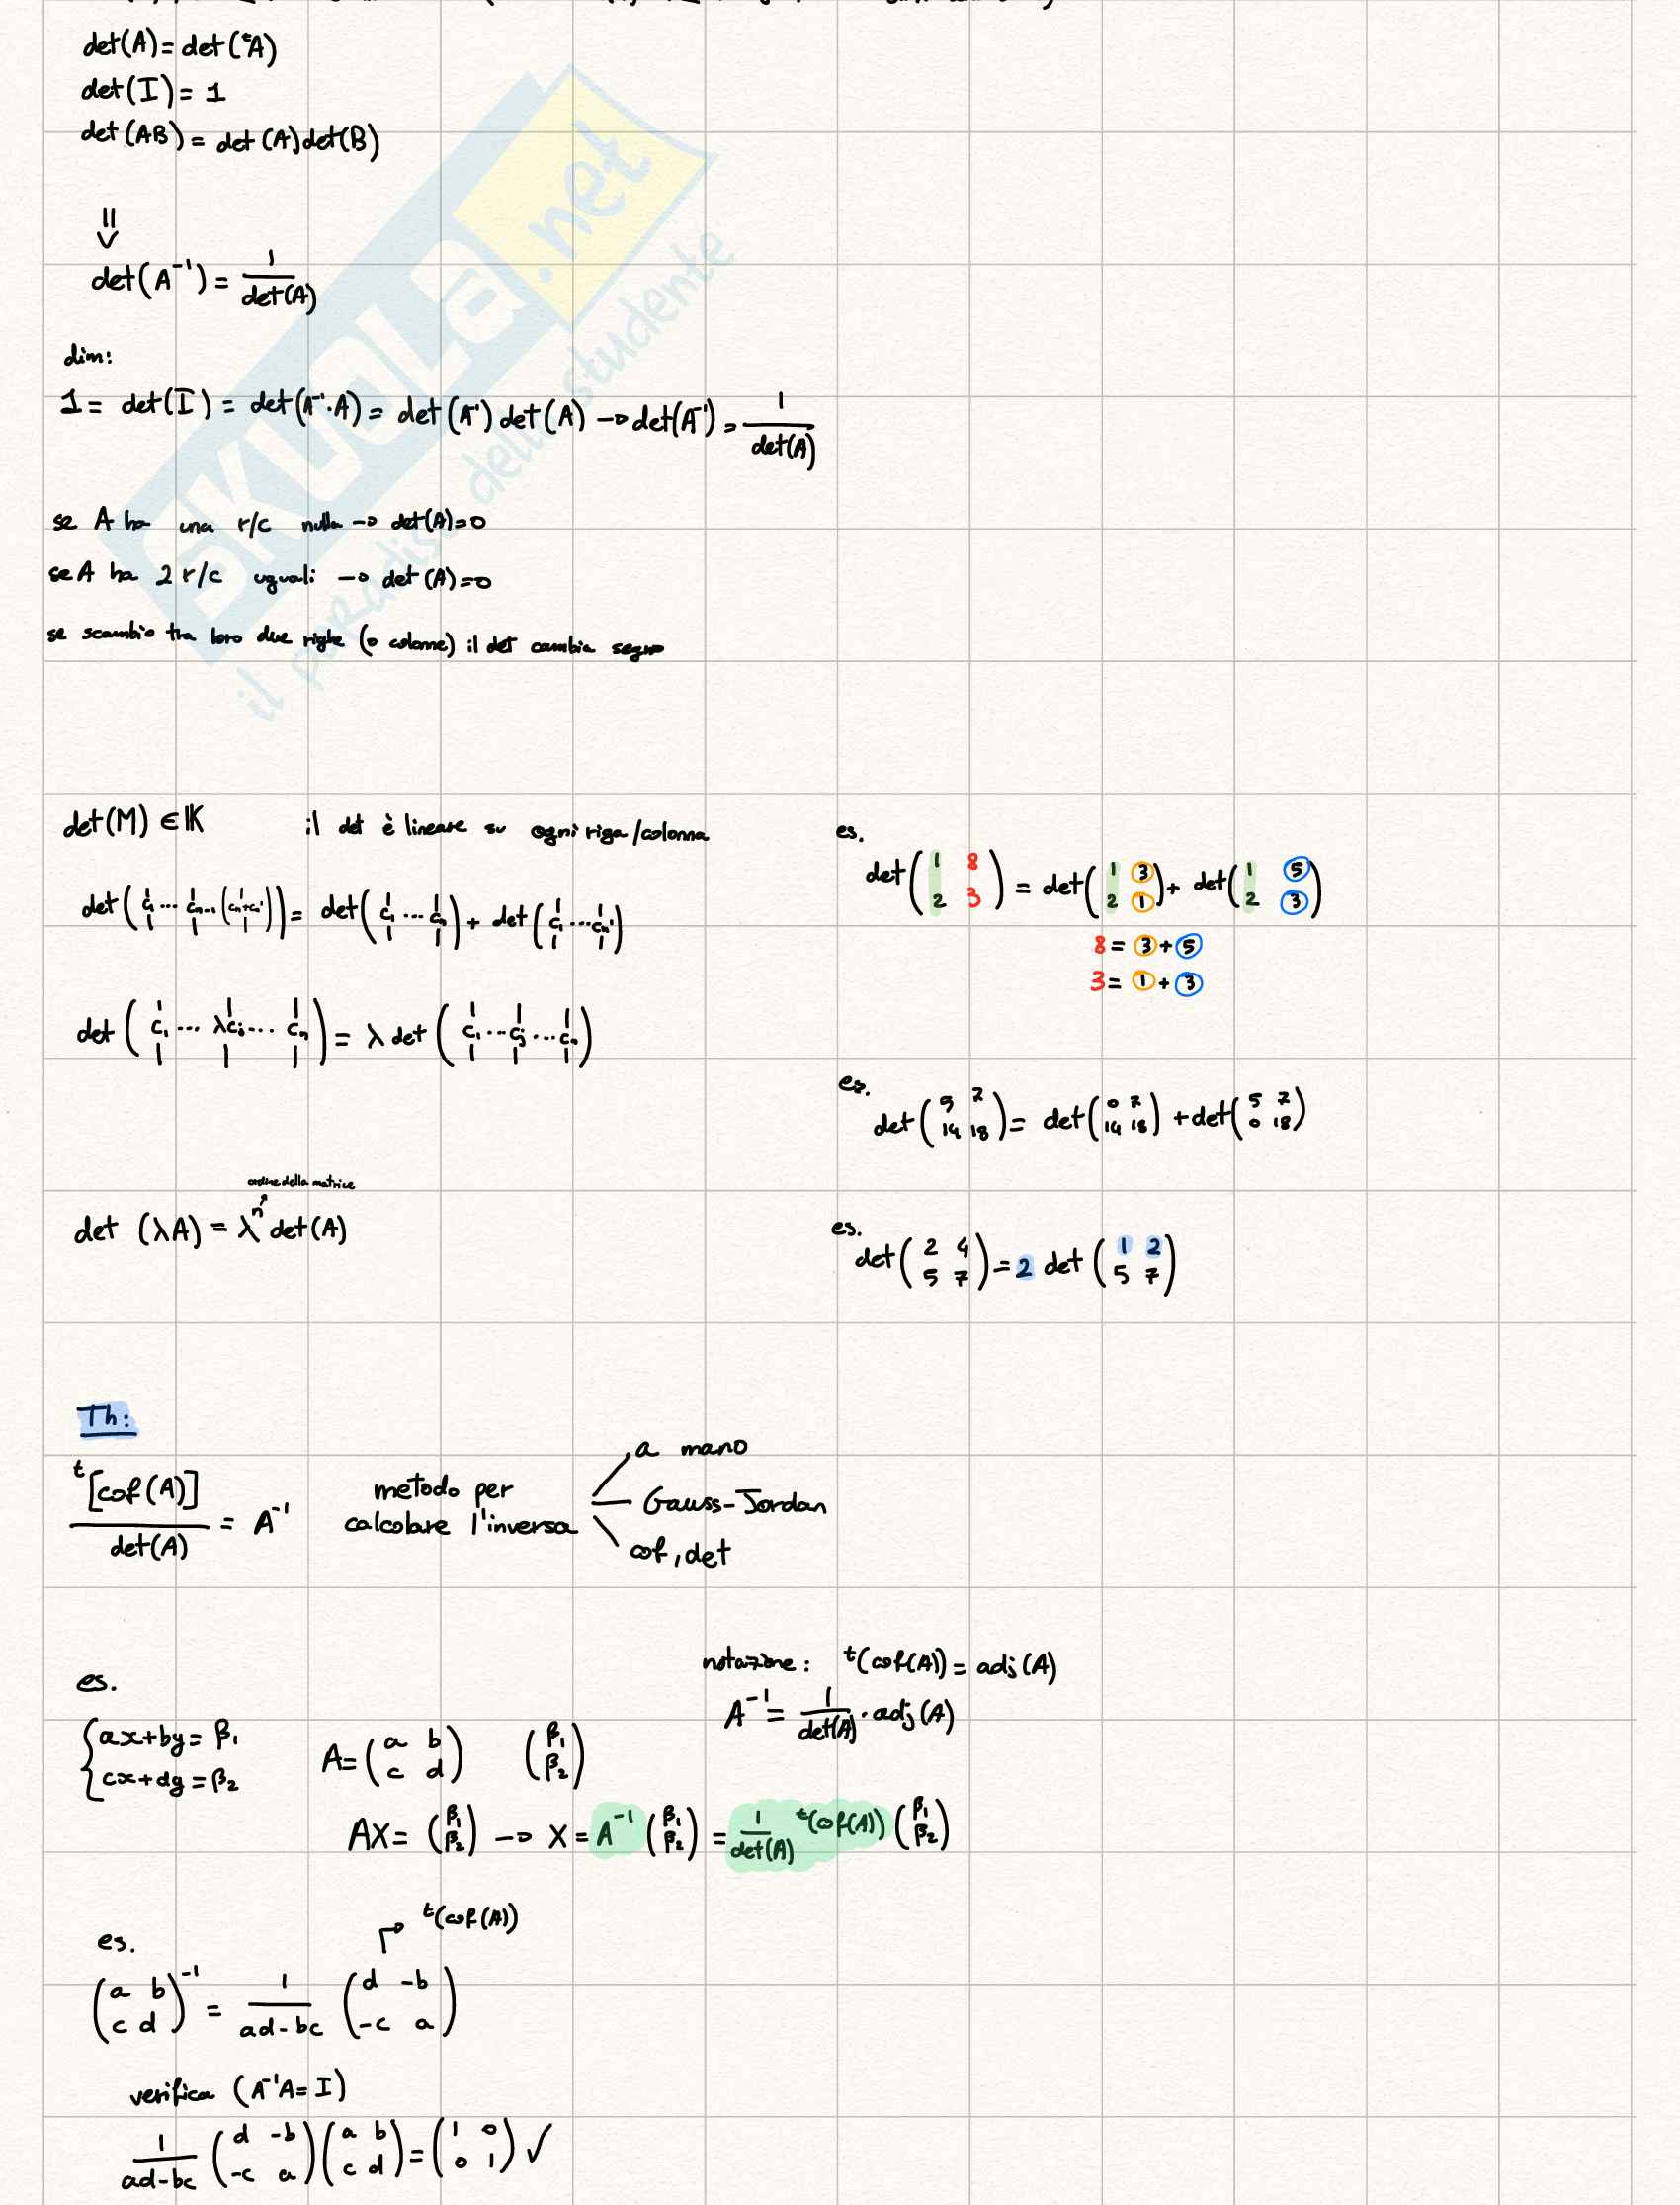 det(A) = det(ᵗA)
det(I) = 1
det(AB) = det(A)det(B)
⇓
det(A⁻¹) = 1/det(A)
dim:
1 = det(I) = det(A⁻¹·A) = det(A⁻¹) det(A) → det(A⁻¹) = 1/det(A)
se A ha una r/c nulla → det(A)=0
se A ha 2 r/c uguali → det(A)=0
se scambio tra loro due righe (o colonne) il det cambia segno
SKUOLA.net
il paradiso dello studente
det(M) ∈ 𝕂 il det è lineare su ogni riga/colonna
det(c₁ ... cₙ₋₁ (cₙ+cₙ')) = det(c₁ ... cₙ) + det(c₁ ... cₙ')
det(c₁ ... λcⱼ ... cₙ) = λ det(c₁ ... cⱼ ... cₙ)
ordine della matrice
det (λA) = λⁿ det(A)
es.
det(1 8 ; 2 3) = det(1 3 ; 2 1) + det(1 5 ; 2 3)
8 = 3 + 5
3 = 1 + 3
es.
det(5 7 ; 14 18) = det(0 7 ; 14 18) + det(5 7 ; 0 18)
es.
det(2 4 ; 5 7) = 2 det(1 2 ; 5 7)
Th:
ᵗ[cof(A)]/det(A) = A⁻¹
metodo per
calcolare l'inversa
a mano
Gauss-Jordan
cof, det
notazione: ᵗ(cof(A)) = adj(A)
A⁻¹ = 1/det(A) · adj(A)
es.
{ax+by = β₁
cx+dy = β₂
A = (a b ; c d) (β₁ ; β₂)
AX = (β₁ ; β₂) → X = A⁻¹ (β₁ ; β₂) = 1/det(A) ᵗ(cof(A)) (β₁ ; β₂)
es.
ᵗ(cof(A))
(a b ; c d)⁻¹ = 1/(ad-bc) (d -b ; -c a)
verifica (A⁻¹A = I)
1/(ad-bc) (d -b ; -c a)(a b ; c d) = (1 0 ; 0 1) ✓